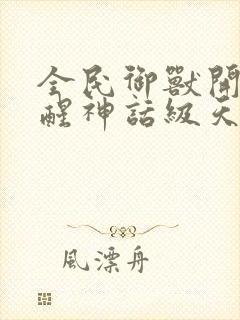 全民御獸開
醒神話級天
風漂舟